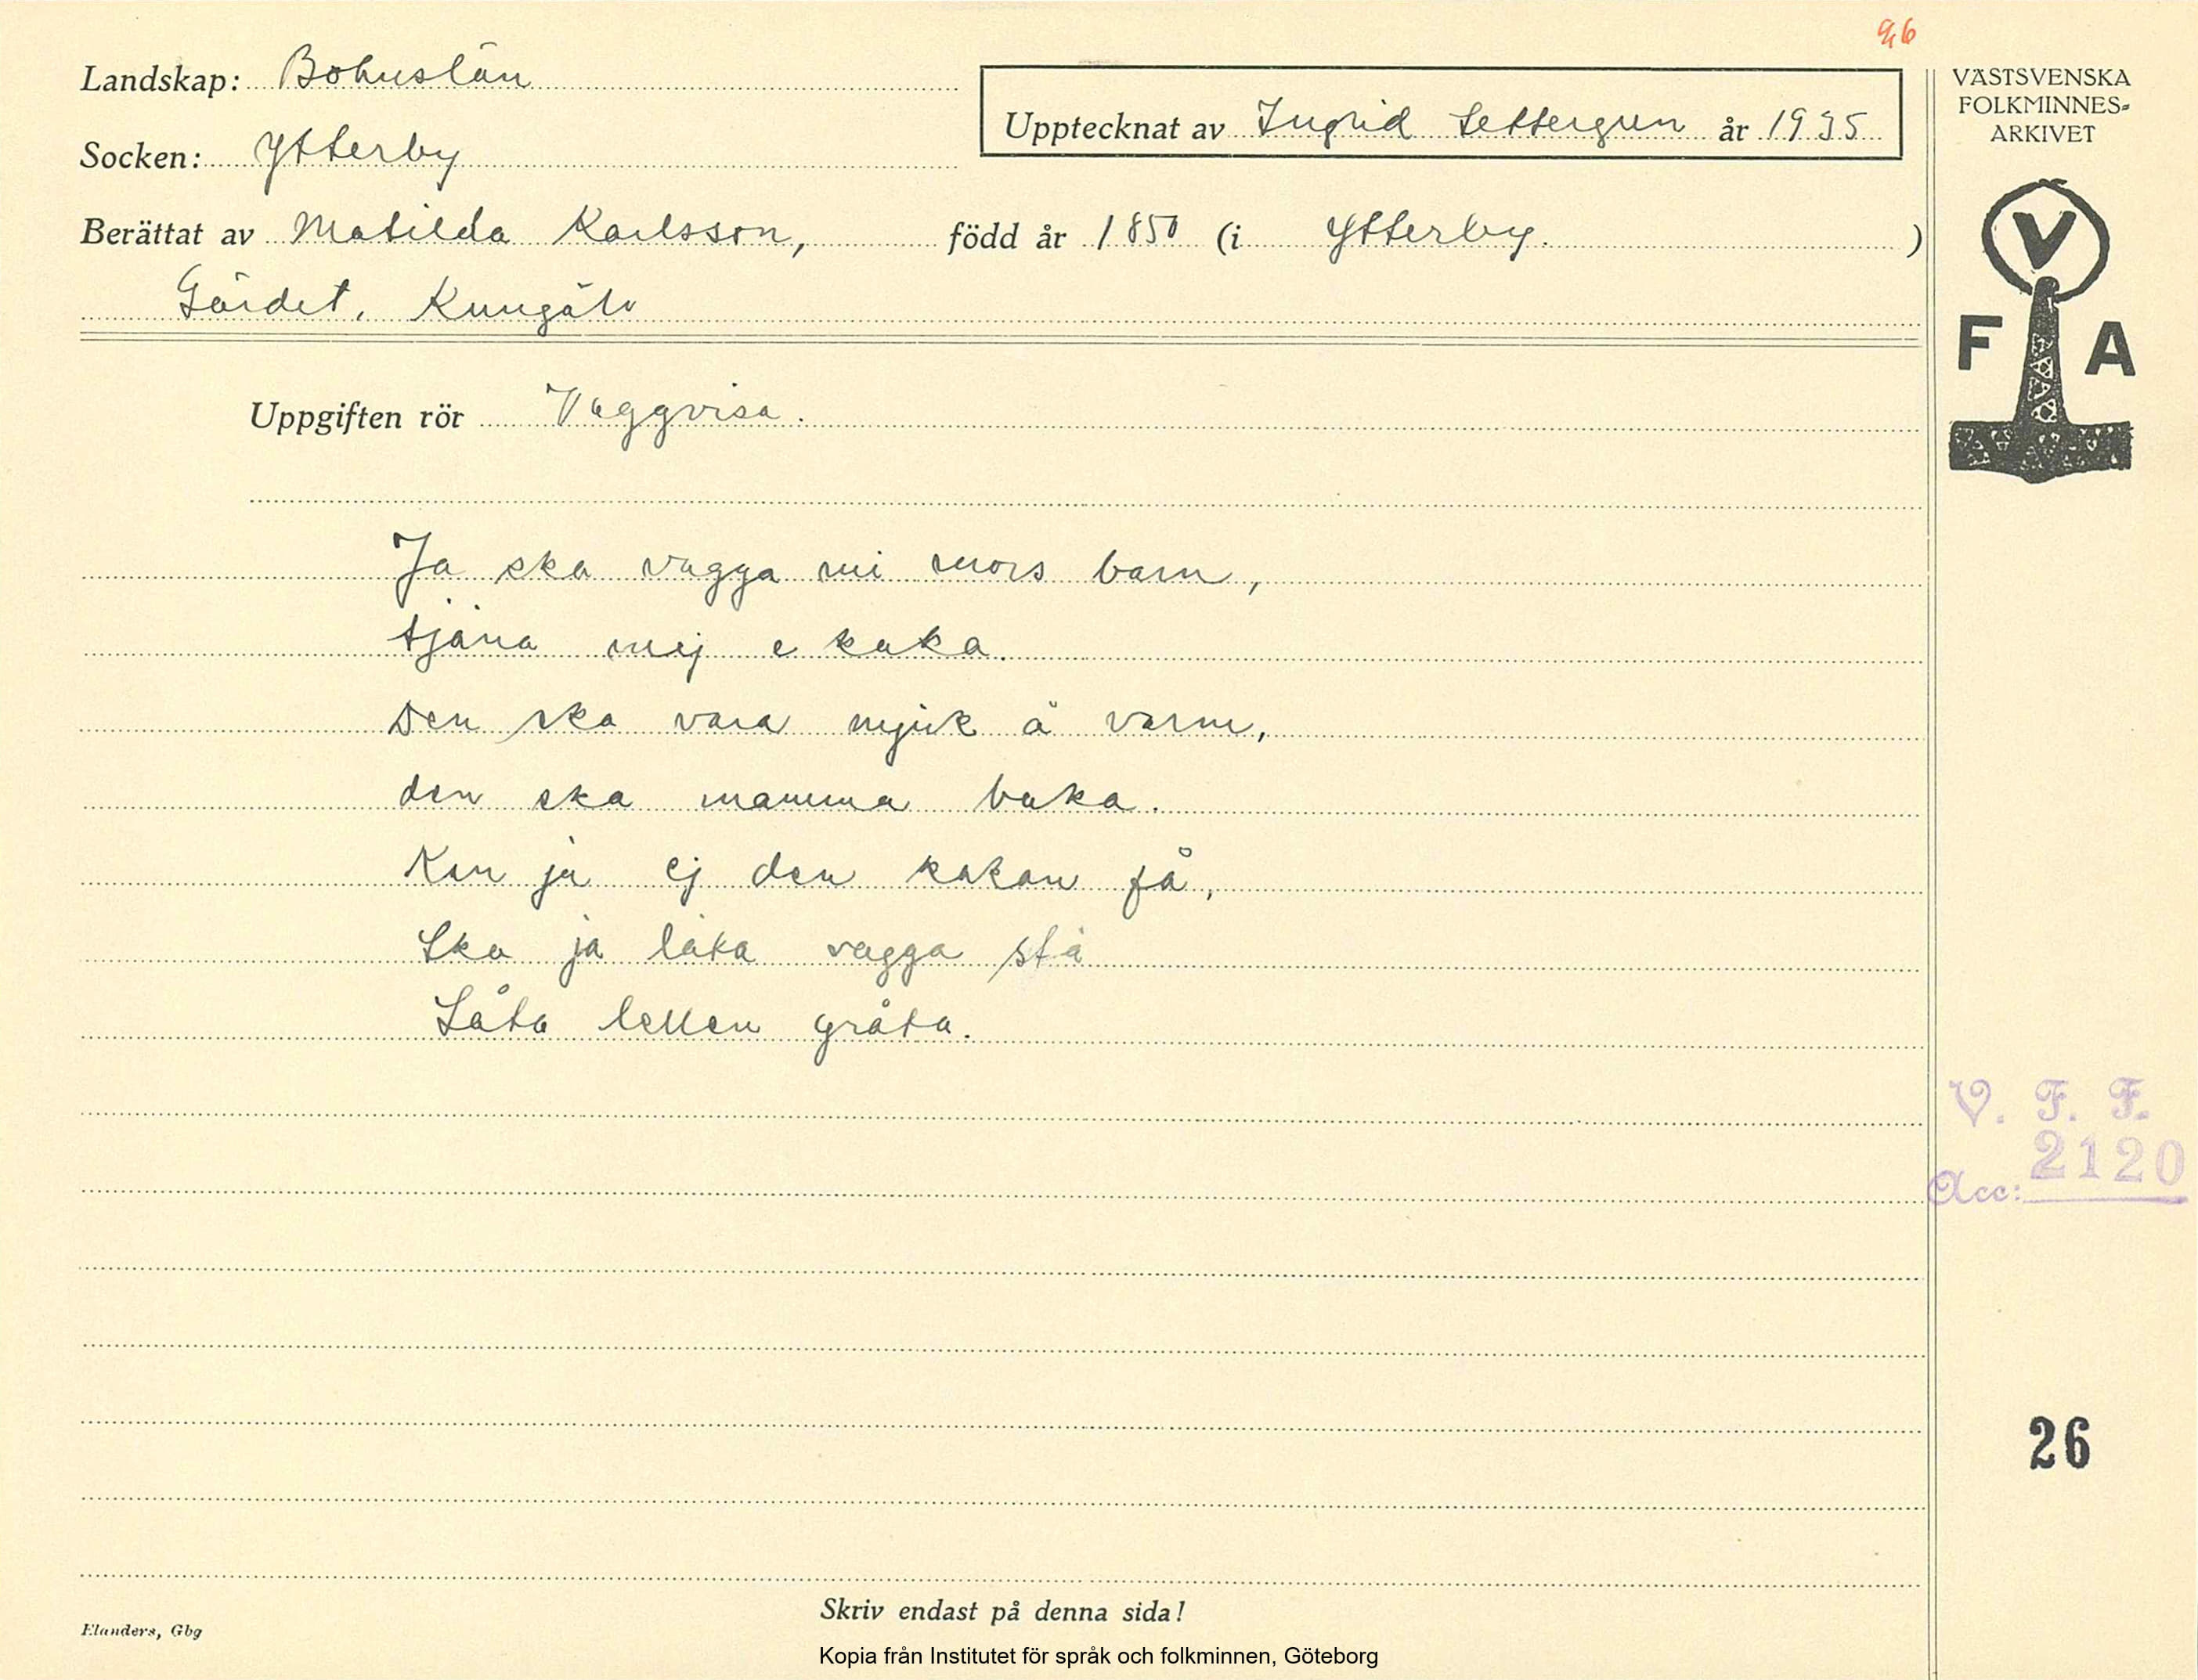 96
Landskap: Bohuslän
Socken: Ytterby
Upptecknat av Ingrid Settergren år 1935
Berättat av Matilda Karlsson, född år 1850 (i Ytterby. )
Gärdet, Kungälv
Uppgiften rör Vaggvisa.
Ja ska vagga mi mors barn,
tjäna mej e kaka.
Den ska vara mjuk å varm,
den ska mamma baka.
Kan ja ej den kakan få,
Ska ja låta vagga stå
Låta lellen gråta.
VÄSTSVENSKA
FOLKMINNES-
ARKIVET
V
F A
V. F. F.
Acc: 2120
26
Skriv endast på denna sida!
Elanders, Gbg
Kopia från Institutet för språk och folkminnen, Göteborg